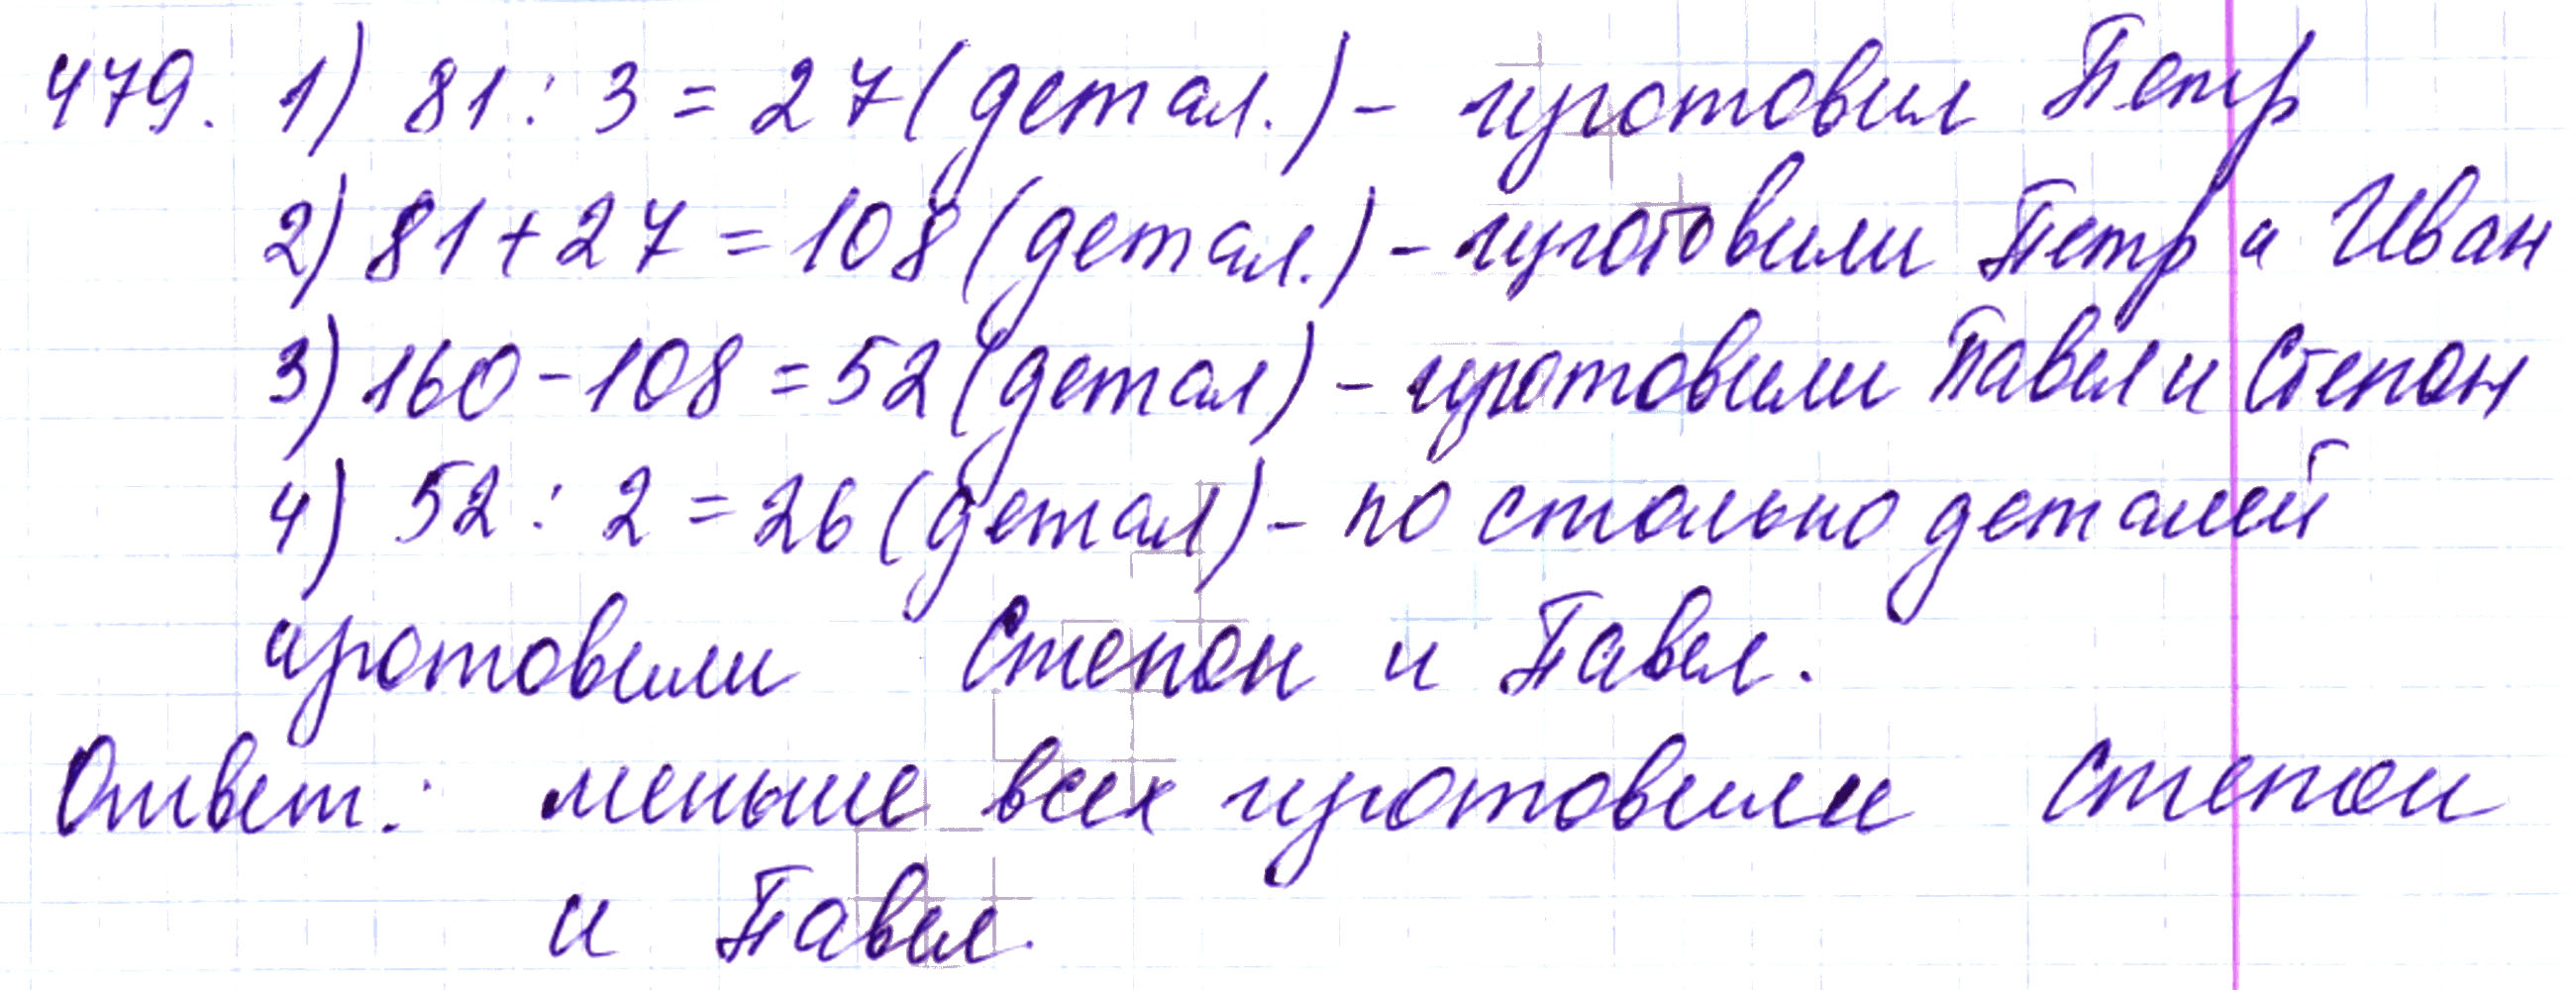 479. 1) 81 : 3 = 27 (детал.) - изготовил Петр
2) 81 + 27 = 108 (детал.) - изготовили Петр и Иван
3) 160 - 108 = 52 (детал) - изготовили Павел и Степан
4) 52 : 2 = 26 (детал) - по столько деталей
изготовили Степан и Павел.
Ответ: меньше всех изготовили Степан
и Павел.